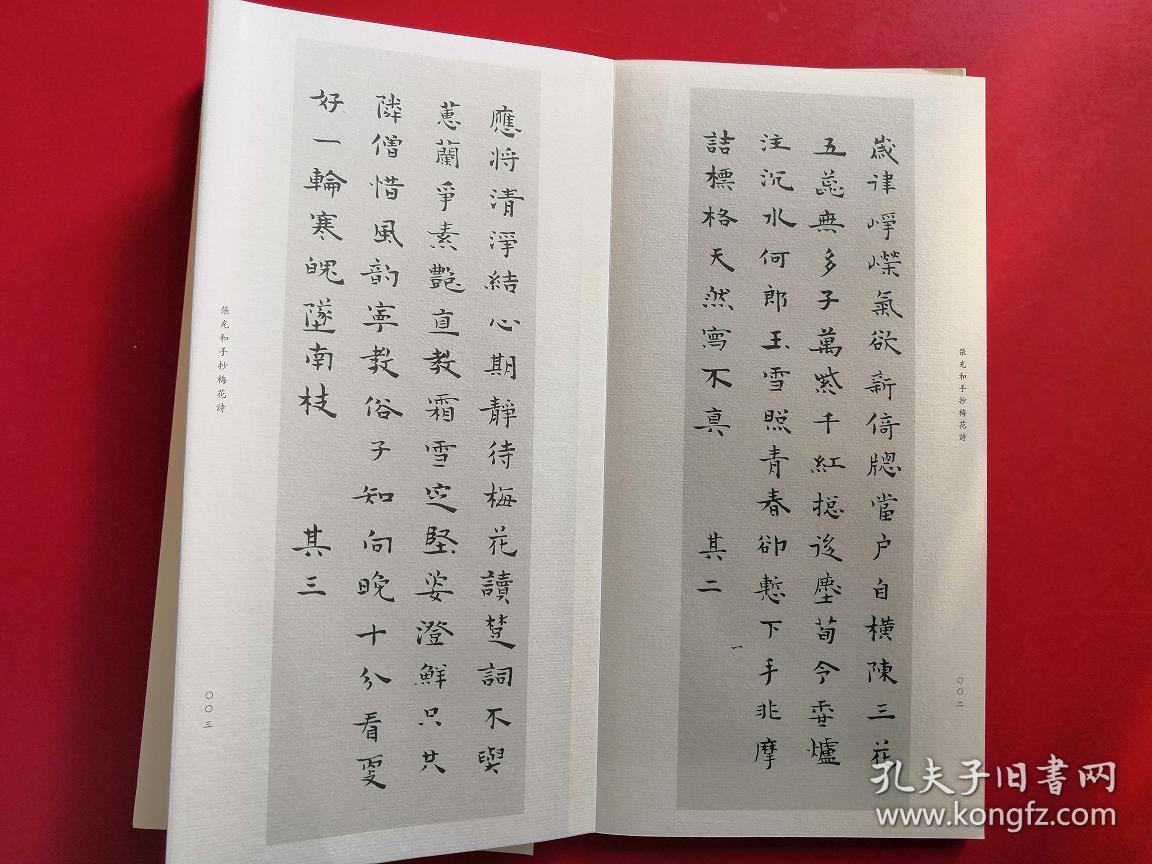 張充和手抄梅花詩
〇〇二
歲律崢嶸氣欲新倚牕當户自橫陳三花
五蕊無多子萬紫千紅揔後塵荀令香爐
注沉水何郎玉雪照青春卻慙下手非摩
詰標格天然寫不真 其二
應將清淨結心期靜待梅花讀楚詞不與
蕙蘭爭素艷直教霜雪定堅姿澄鮮只共
隣僧惜風韵寧教俗子知向晚十分看更
好一輪寒魄墜南枝 其三
張充和手抄梅花詩
〇〇三
孔夫子旧書网
www.kongfz.com